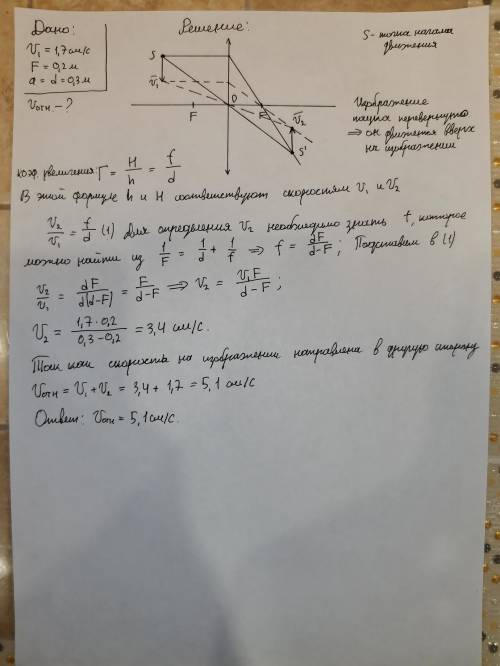 Дано:
V₁ = 1,7 см/с
F = 0,2 м
a = d = 0,3 м
Vотн - ?
Решение:
S - точка начала
движения
S
V̅₁
F
O
F
V̅₂
S'
Изображение
паука перевернуто
⇒ он движется вверх
на изображении
коэф. увеличения: Г = H/h = f/d
В этой формуле h и H соответствуют скоростям V₁ и V₂
V₂/V₁ = f/d (1) Для определения V₂ необходимо знать f, которое
можно найти из 1/F = 1/d + 1/f ⇒ f = dF/(d-F); Подставляем в (1)
V₂/V₁ = dF/(d(d-F)) = F/(d-F) ⇒ V₂ = V₁F/(d-F);
V₂ = (1,7·0,2)/(0,3-0,2) = 3,4 см/с.
Так как скорость на изображении направлена в другую сторону
Vотн = V₁ + V₂ = 3,4 + 1,7 = 5,1 см/с
Ответ: Vотн = 5,1 см/с.